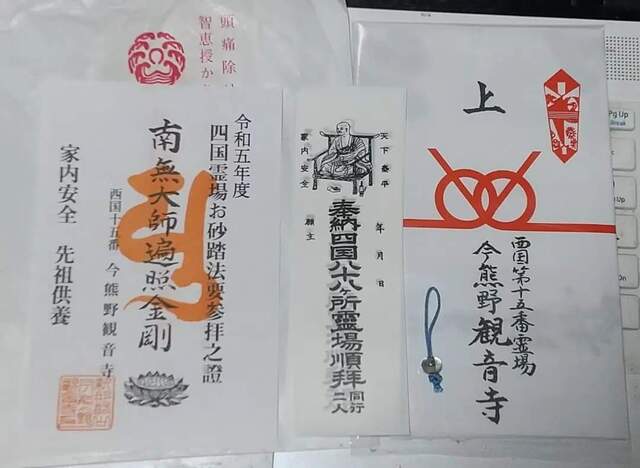 頭痛除け
智恵授か
令和五年度
四国霊場お砂踏法要参拝之證
南無大師遍照金剛
西国十五番 今熊野観音寺
家内安全 先祖供養
天下泰平
家内安全
奉納四国八十八ヶ所霊場順拝
同行二人
年月日
願主
上
西国第十五番霊場
今熊野観音寺
Pg Up
Break
Pg Up